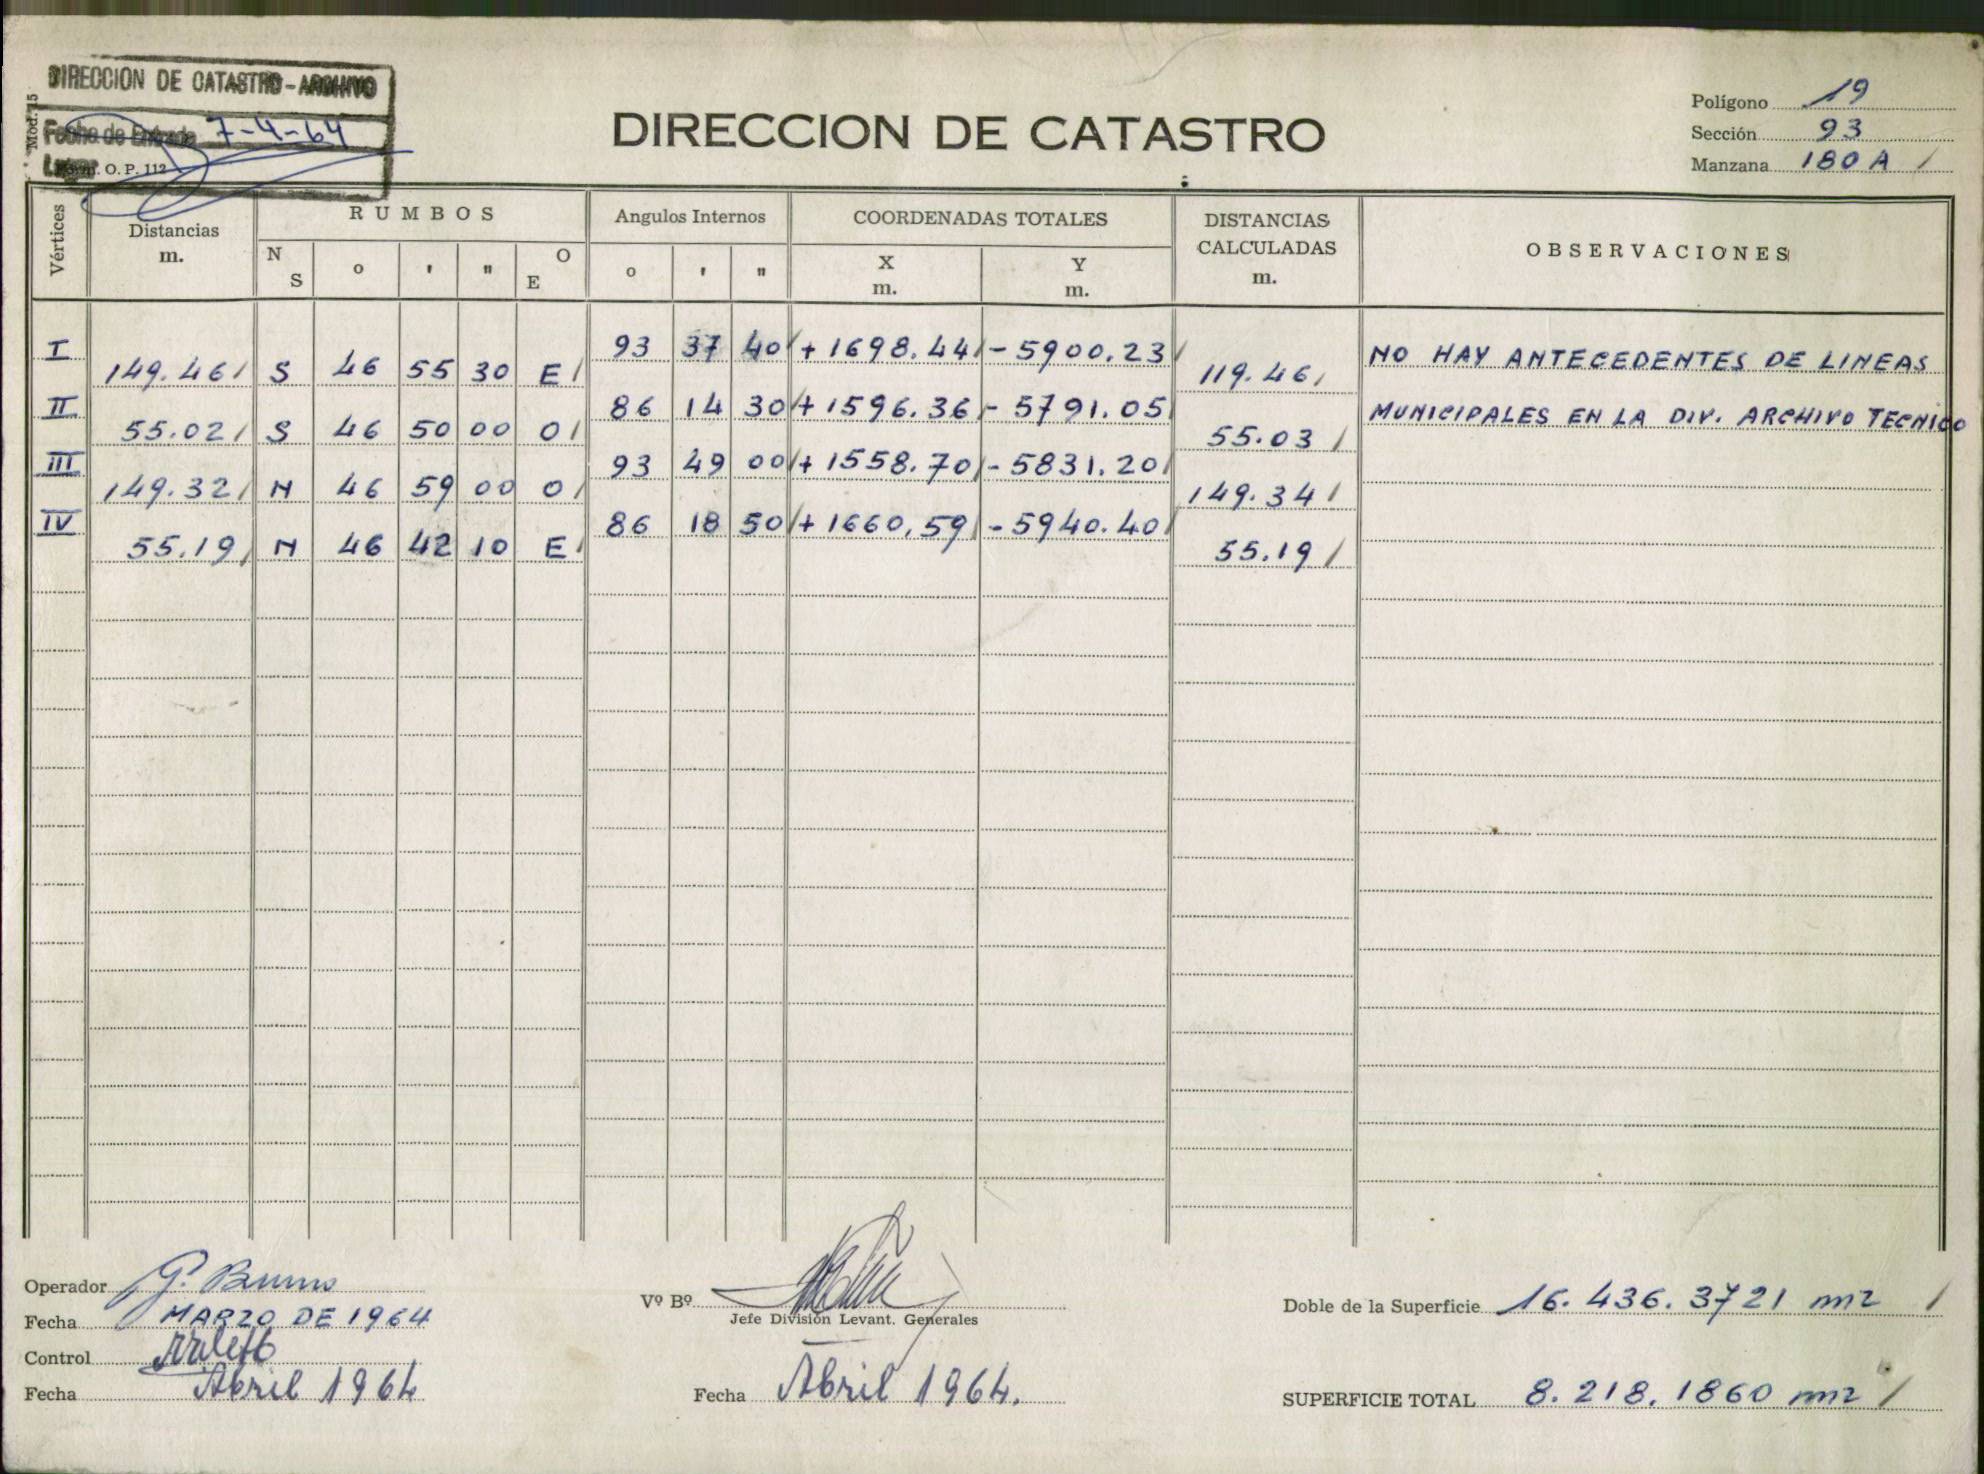 DIRECCION DE CATASTRO - ARCHIVO
Fecha de Entrada 7-4-64
Legajo
Mod. 15
O. P. 112
DIRECCION DE CATASTRO
Polígono 19
Sección 93
Manzana 180 A /
Vértices
Distancias
m.
RUMBOS
N
S
o
'
"
O
E
Angulos Internos
o
'
"
COORDENADAS TOTALES
X
m.
Y
m.
DISTANCIAS
CALCULADAS
m.
OBSERVACIONES
I 93 37 40 / + 1698.44 / - 5900.23 / NO HAY ANTECEDENTES DE LINEAS
149.46 / S 46 55 30 E / 119.46 /
II 86 14 30 / + 1596.36 / - 5791.05 / MUNICIPALES EN LA DIV. ARCHIVO TECNICO
55.02 / S 46 50 00 O / 55.03 /
III 93 49 00 / + 1558.70 / - 5831.20 /
149.32 / N 46 59 00 O / 149.34 /
IV 86 18 50 / + 1660,59 / - 5940.40 /
55.19 / N 46 42 10 E / 55.19 /
Operador G. Bruno
Fecha MARZO DE 1964
Control
Fecha Abril 1964
Vº Bº
Jefe División Levant. Generales
Fecha Abril 1964.
Doble de la Superficie 16.436.3721 m2 /
SUPERFICIE TOTAL 8.218.1860 m2 /